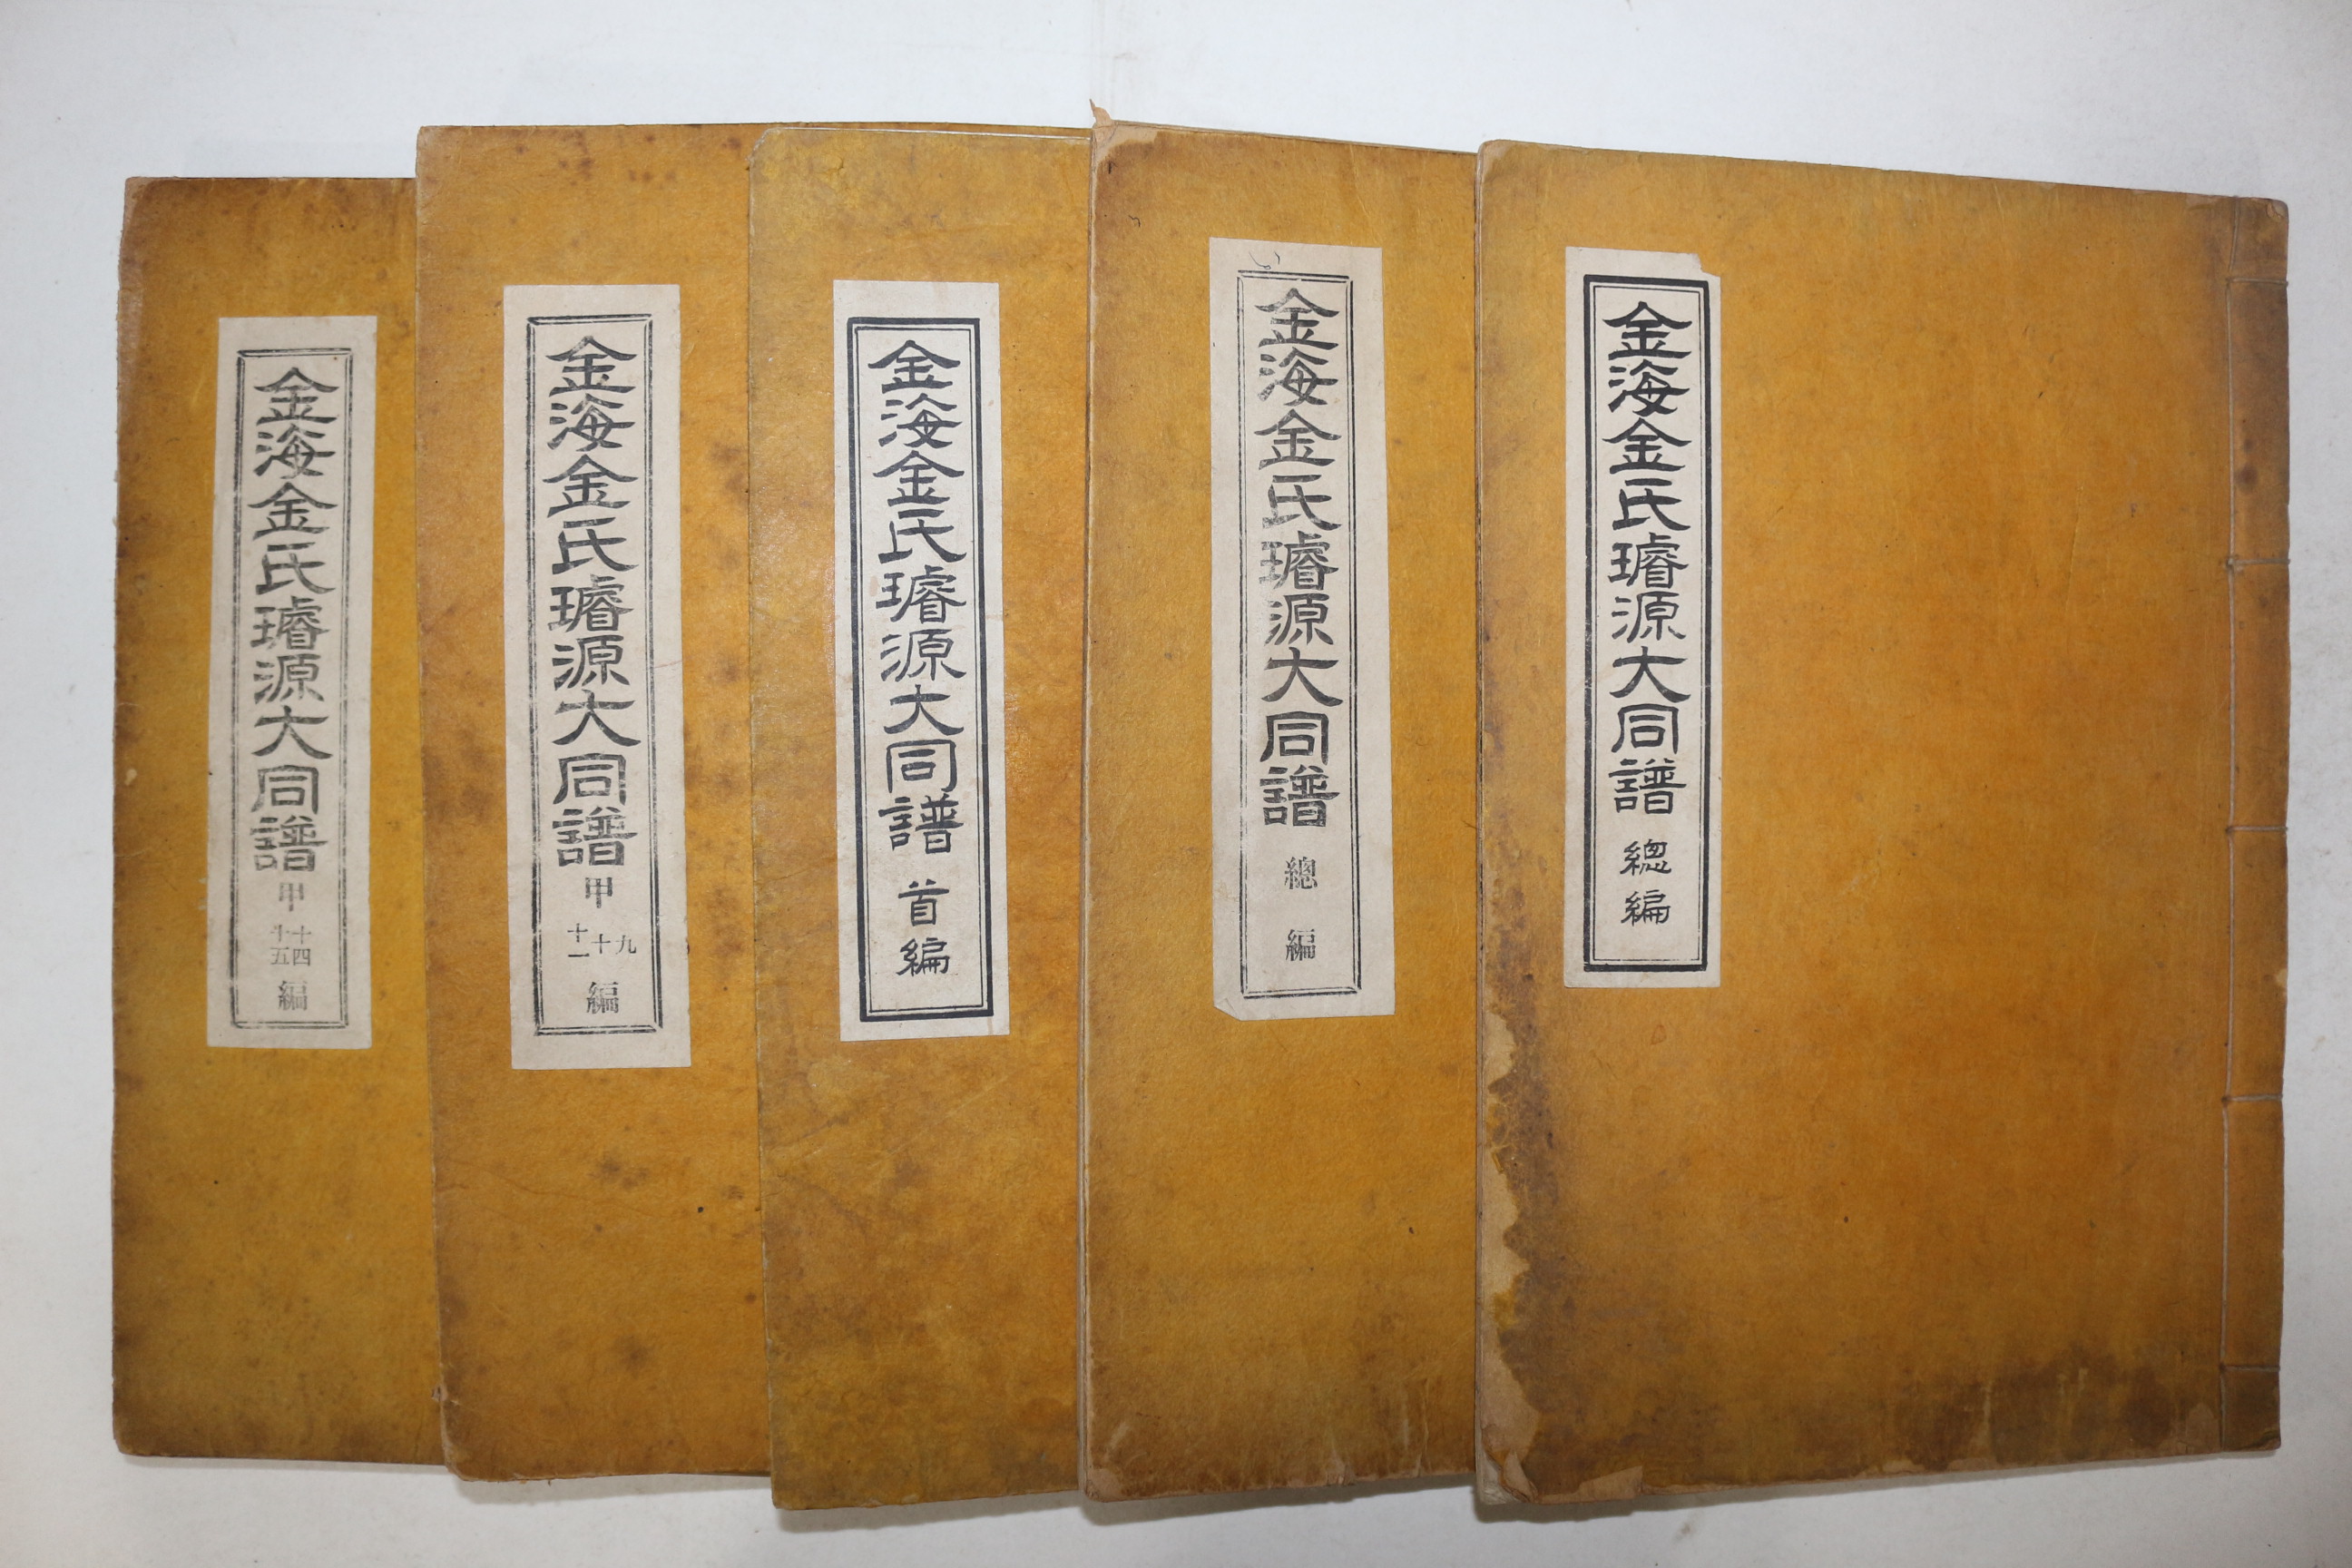 金海金氏璿源大同譜 總編
金海金氏璿源大同譜 總編
金海金氏璿源大同譜 首編
金海金氏璿源大同譜 甲 九 十 十一 編
金海金氏璿源大同譜 甲 十四 十五 編